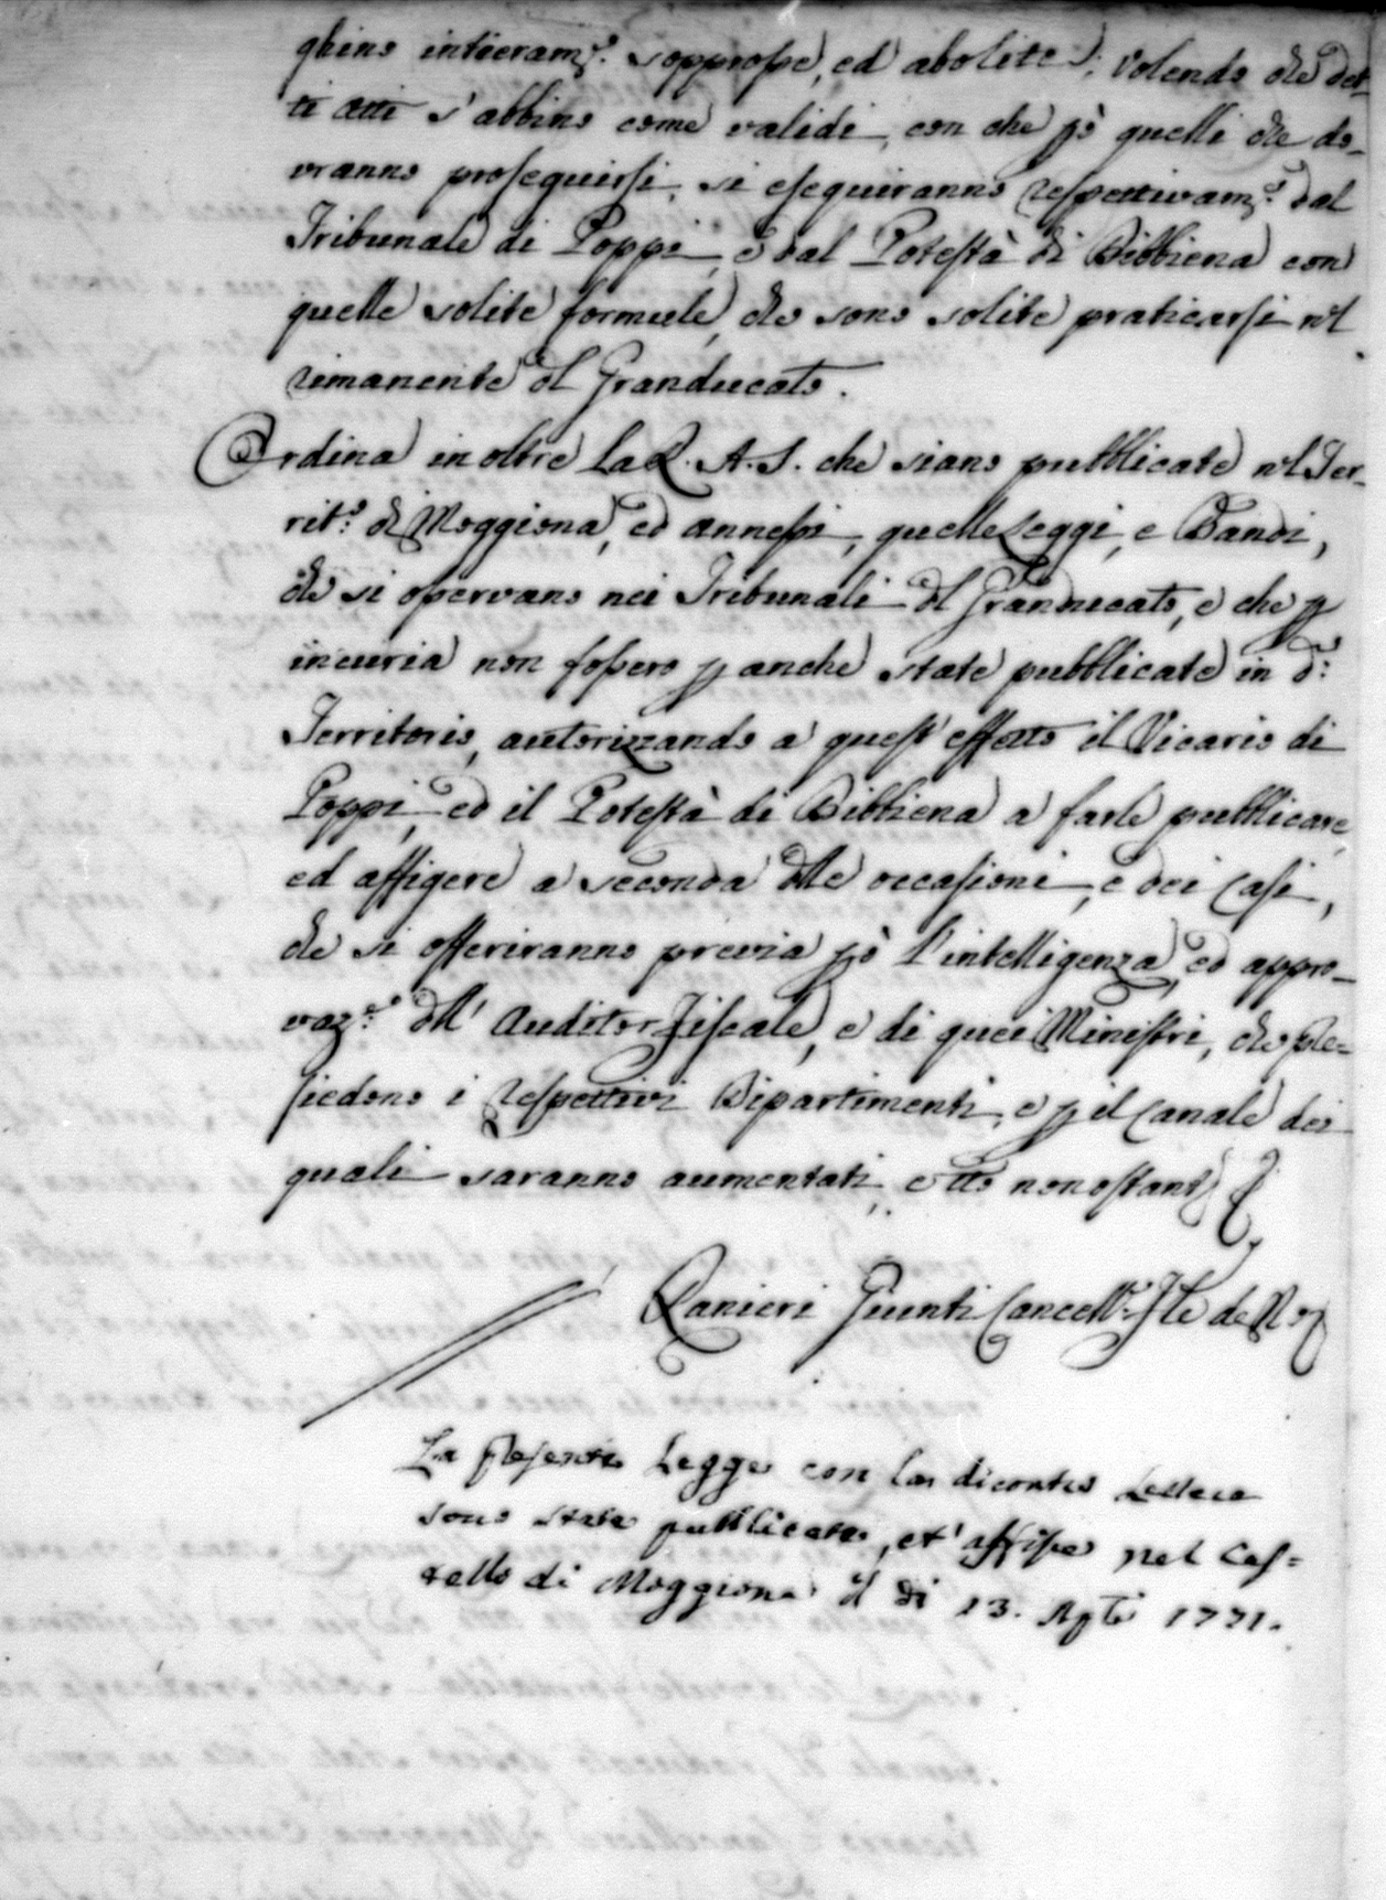 ghino intieram.e soppresse, ed abolite; Volendo che det-
ti atti s'abbino come validi, con che pò quelli che do-
vranno proseguirsi, si eseguiranno respettivam.e dal
Tribunale di Poppi, e dal Potestà di Bibbiena con
quelle solite formule, che sono solite praticarsi nel
rimanente del Granducato.
Ordina in oltre La R. A. S. che siano pubblicate nel Ter-
rit.o di Moggiona, ed annessi, quelle Leggi, e Bandi,
che si osservano nei Tribunali del Granducato, e che p
incuria non fossero p anche state pubblicate in d.o
Territorio, autorizzando a quest'effetto il Vicario di
Poppi, ed il Potestà di Bibbiena a farle pubblicare
ed affigere a seconda delle occasioni, e dei casi,
che si offeriranno previa pò l'intelligenza, ed appro-
vaz.e dell' Auditor Fiscale, e di quei Ministri, che pre=
siedono i respettivi Dipartimenti, e p il canale dei
quali saranno aumentati, e tto nonostante
Ranieri Giunti Cancell.re
La presente Legge con la di contro Lettera
sono state pubblicate, et affisse nel Cas=
tello di Moggiona il di 13. Agto 1771.